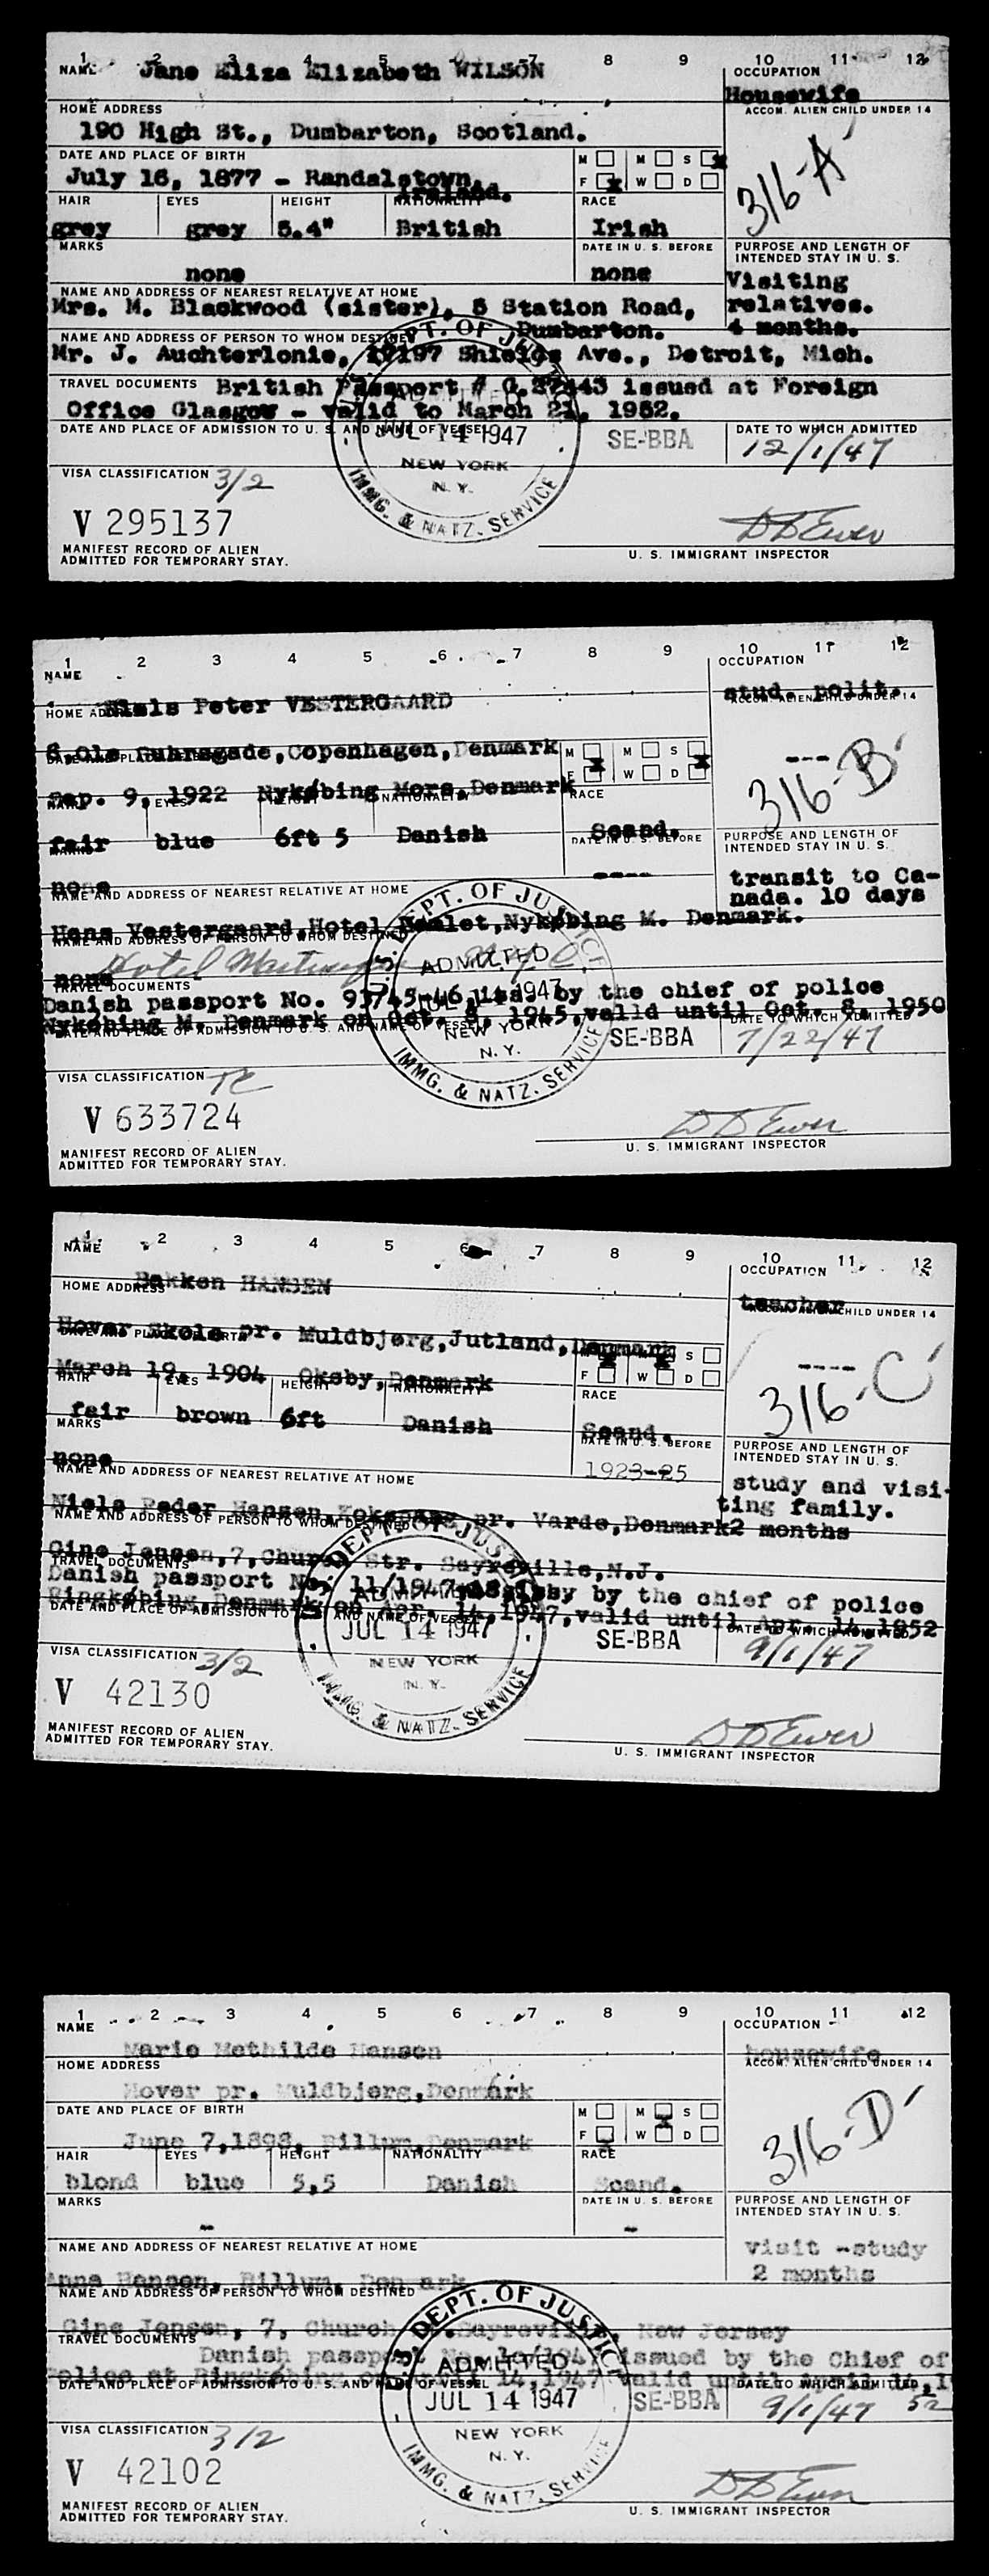 1 2 3 4 5 6 7 8 9 10 11 12
NAME Jane Eliza Elizabeth WILSON
OCCUPATION
Housewife
HOME ADDRESS
ACCOM. ALIEN CHILD UNDER 14
190 High St., Dumbarton, Scotland.
DATE AND PLACE OF BIRTH
M M S X
July 16, 1877 - Randalstown, Ireland.
F X W D
316-A
HAIR EYES HEIGHT NATIONALITY RACE
grey grey 5.4" British Irish
MARKS DATE IN U. S. BEFORE PURPOSE AND LENGTH OF INTENDED STAY IN U. S.
none none Visiting relatives. 4 months.
NAME AND ADDRESS OF NEAREST RELATIVE AT HOME
Mrs. M. Blackwood (sister), 5 Station Road, Dumbarton.
NAME AND ADDRESS OF PERSON TO WHOM DESTINED
Mr. J. Auchterlonie, Shields Ave., Detroit, Mich.
TRAVEL DOCUMENTS British Passport # issued at Foreign
Office Glasgow - valid to March 21, 1952.
DATE AND PLACE OF ADMISSION TO U. S. AND NAME OF VESSEL
DEPT. OF JUSTICE ADMITTED JUL 14 1947 NEW YORK N. Y. IMMG. & NATZ. SERVICE
SE-BBA
DATE TO WHICH ADMITTED
12/1/47
VISA CLASSIFICATION 3/2
V 295137
D D Ewer
MANIFEST RECORD OF ALIEN
ADMITTED FOR TEMPORARY STAY.
U. S. IMMIGRANT INSPECTOR
1 2 3 4 5 6 7 8 9 10 11 12
NAME OCCUPATION
Niels Peter VESTERGAARD stud. polit.
HOME ADDRESS ACCOM. ALIEN CHILD UNDER 14
Copenhagen, Denmark ---
DATE AND PLACE OF BIRTH
M X M S X
F W D
316-B
Sep. 9, 1922 Nykøbing Mors, Denmark
HAIR EYES HEIGHT NATIONALITY RACE
fair blue 6ft 5 Danish Scand.
MARKS DATE IN U. S. BEFORE PURPOSE AND LENGTH OF INTENDED STAY IN U. S.
none ---- transit to Canada. 10 days
NAME AND ADDRESS OF NEAREST RELATIVE AT HOME
Vestergaard, Hotel Nykøbing M. Denmark.
NAME AND ADDRESS OF PERSON TO WHOM DESTINED
none Hotel
TRAVEL DOCUMENTS
Danish passport No. by the chief of police
Nykøbing M. Denmark on Oct. 8, 1945, valid until Oct. 8, 1950
DATE AND PLACE OF ADMISSION TO U. S. AND NAME OF VESSEL
DEPT. OF JUSTICE ADMITTED 1947 NEW YORK N. Y. IMMG. & NATZ. SERVICE
SE-BBA
DATE TO WHICH ADMITTED
7/22/47
VISA CLASSIFICATION TC
V 633724
D D Ewer
MANIFEST RECORD OF ALIEN
ADMITTED FOR TEMPORARY STAY.
U. S. IMMIGRANT INSPECTOR
1 2 3 4 5 6 7 8 9 10 11 12
NAME OCCUPATION
Bakken HANSEN teacher
HOME ADDRESS ACCOM. ALIEN CHILD UNDER 14
Hover Skole pr. Muldbjerg, Jutland, Denmark ----
DATE AND PLACE OF BIRTH
X X S
F W D
316-C
March 19, 1904 Oksby, Denmark
HAIR EYES HEIGHT NATIONALITY RACE
fair brown 6ft Danish Scand.
MARKS DATE IN U. S. BEFORE PURPOSE AND LENGTH OF INTENDED STAY IN U. S.
none 1923-25 study and visiting family. 2 months
NAME AND ADDRESS OF NEAREST RELATIVE AT HOME
Niels Peder Hansen, pr. Varde, Denmark
NAME AND ADDRESS OF PERSON TO WHOM DESTINED
Gine Jensen, 7, Church Str. Sayreville, N.J.
TRAVEL DOCUMENTS
Danish passport No. 11/1947 by the chief of police
Ringkøbing, Denmark on Apr. 14, 1947, valid until Apr. 14, 1952
DATE AND PLACE OF ADMISSION TO U. S. AND NAME OF VESSEL
DEPT. OF JUSTICE ADMITTED JUL 14 1947 NEW YORK N. Y. IMMG. & NATZ. SERVICE
SE-BBA
DATE TO WHICH ADMITTED
9/1/47
VISA CLASSIFICATION 3/2
V 42130
D D Ewer
MANIFEST RECORD OF ALIEN
ADMITTED FOR TEMPORARY STAY.
U. S. IMMIGRANT INSPECTOR
1 2 3 4 5 6 7 8 9 10 11 12
NAME OCCUPATION
Marie Mathilde Hansen housewife
HOME ADDRESS ACCOM. ALIEN CHILD UNDER 14
Hover pr. Muldbjerg, Denmark
DATE AND PLACE OF BIRTH
M M X S
F X W D
316-D
June 7, 1898, Billum, Denmark
HAIR EYES HEIGHT NATIONALITY RACE
blond blue 5,5 Danish Scand.
MARKS DATE IN U. S. BEFORE PURPOSE AND LENGTH OF INTENDED STAY IN U. S.
- - visit -study 2 months
NAME AND ADDRESS OF NEAREST RELATIVE AT HOME
Anna Hansen, Billum, Denmark
NAME AND ADDRESS OF PERSON TO WHOM DESTINED
Gine Jensen, 7, Church Sayreville, New Jersey
TRAVEL DOCUMENTS
Danish passport No. 10/1947 issued by the Chief of
Police at Ringkøbing on April 14, 1947 valid until April 14, 1952
DATE AND PLACE OF ADMISSION TO U. S. AND NAME OF VESSEL
U. S. DEPT. OF JUSTICE ADMITTED JUL 14 1947 NEW YORK N. Y. IMMG. & NATZ. SERVICE
SE-BBA
DATE TO WHICH ADMITTED
9/1/47
VISA CLASSIFICATION 3/2
V 42102
D D Ewer
MANIFEST RECORD OF ALIEN
ADMITTED FOR TEMPORARY STAY.
U. S. IMMIGRANT INSPECTOR